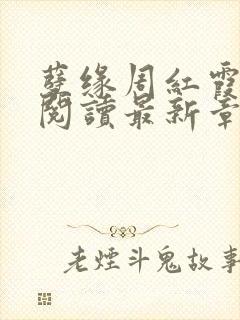 孽缘周紅霞
閱讀最新章
老煙斗鬼故事